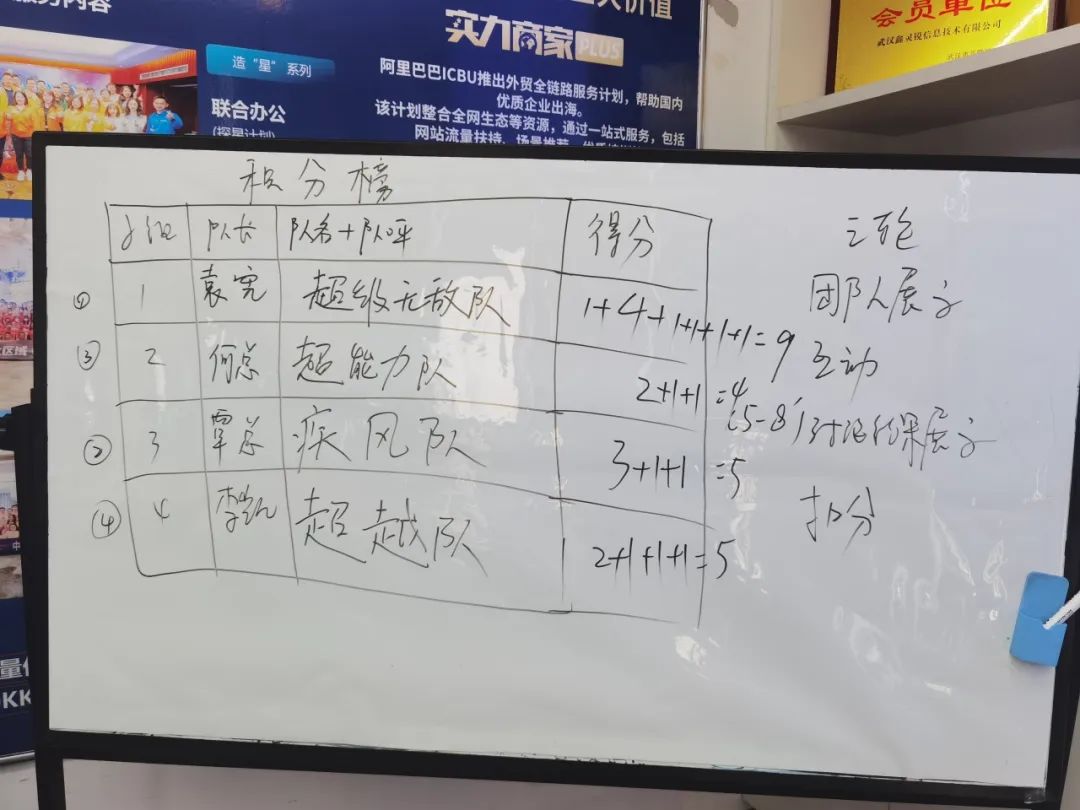 服务内容
大价值
实力商家 PLUS
造“星”系列
阿里巴巴ICBU推出外贸全链路服务计划，帮助国内
优质企业出海。
联合办公
该计划整合全网生态等资源，通过一站式服务，包括
(探星计划)
网站流量扶持、场景推荐
会员单位
武汉鑫灵锐信息技术有限公司
积分榜
小组 队长 队名+队呼 得分
① 1 袁宪 超级无敌队 1+4+1+1+1+1=9
③ 2 何总 超能力队 2+1+1=4
② 3 覃总 疾风队 3+1+1=5
④ 4 李凯 超越队 2+1+1+1=5
三轮
团队展示
互动
(5-8')讨论结果展示
扣分